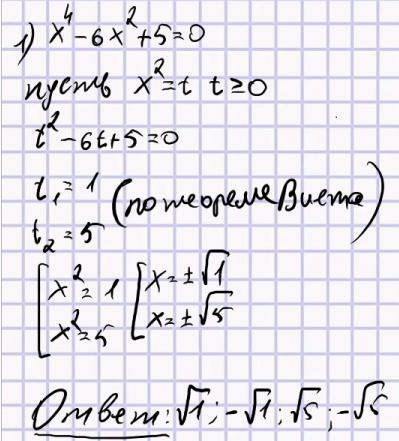 1) x⁴-6x²+5=0
пусть x²=t t≥0
t²-6t+5=0
t₁=1
(по теореме Виета)
t₂=5
[x²=1 [x=±√1
x²=5 x=±√5
Ответ: √1; -√1; √5; -√5